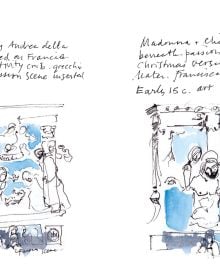 Andrea della
ed on Francis
tivity crib. grecchio
ssion scene inserted
Madonna +
beneath passion
Christmas vers
later. Francisca
Early 15 c. art